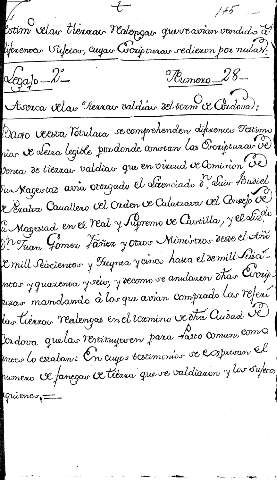 t
185
testim.os de las tierras realengas que se avian vendido a
diferentes sujetos, cuyas Escripturas se dieron por nulas.
Legajo 2.o Numero 28
Acerca de las tierras valdias del term.o de Cordova;
Bajo de esta Rotulata se comprehenden diferentes Testimo
nios de Letra legible por donde constan las Escripturas de
venta de tierras valdias que en virtud de Comision de
su Magestad avia otorgado el Licenciado D.n Luis Gudiel
de Peralta Cavallero del Orden de Calatrava del Consejo de
su Magestad en el Real y Supremo de Castilla, y el Lic.do
D.n Juan Gomez Yañez y otros Ministros desde el Año
de mill seiscientos y treynta y cinco hasta el de mill seisci
entos y quarenta y seis, y de como se anularon dhas Escrip
turas mandando a los que avian comprado las referi
das tierras realengas en el termino de dha Ciudad de
Cordova que las restituyesen para Pasto comun, como
antes lo estaban: En cuyos testimonios se expresan el
numero de fanegas de tierra que se valdiaron y los sujetos
siguientes,=